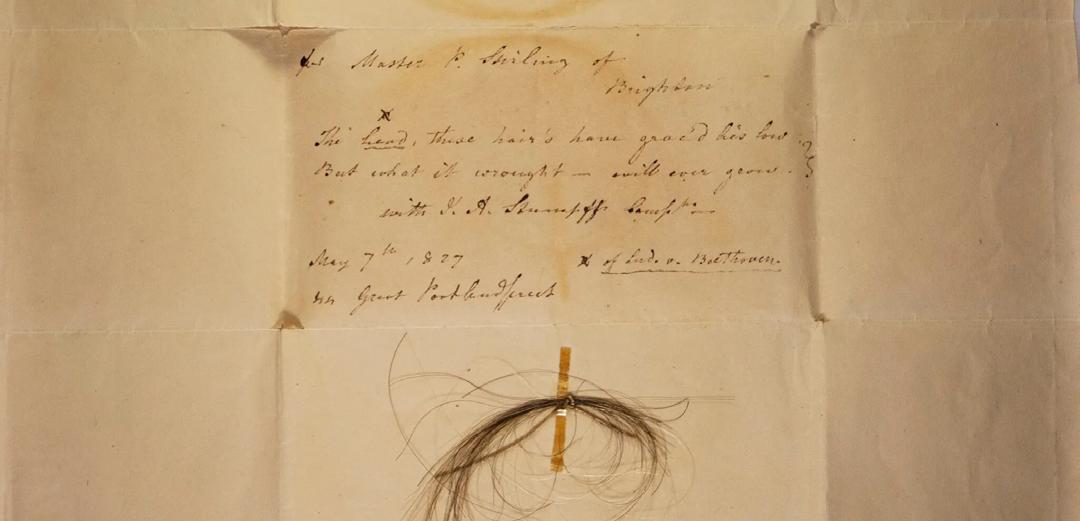 for Master P. Stirling of
Brighton
x
The head, these hair's have grac'd lies low
But what it wrought — will ever grow.
with J. A. Stumpff
May 7th, 1827
x of Lud. v. Beethoven.
Great Portland Street